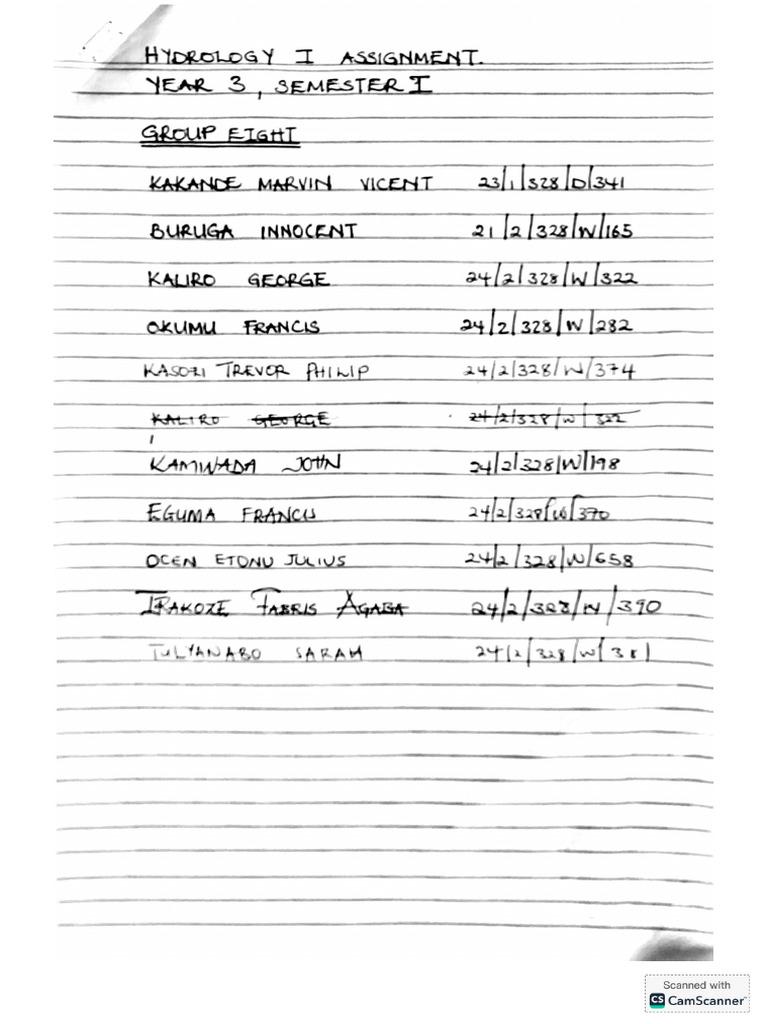 HYDROLOGY I ASSIGNMENT.
YEAR 3, SEMESTER I
GROUP EIGHT
KAKANDE MARVIN VICENT 23/1/328/D/341
BURUGA INNOCENT 21/2/328/W/165
KALIRO GEORGE 24/2/328/W/322
OKUMU FRANCIS 24/2/328/W/282
KASOZI TREVOR PHILIP 24/2/328/W/374
KALIRO GEORGE 24/2/328/W/322
KAMWADA JOHN 24/2/328/W/198
EGUMA FRANCIS 24/2/328/W/370
OCEN ETONU JULIUS 24/2/328/W/658
IRAKOZE FABRIS AGABA 24/2/328/W/390
TULYANABO SARAH 24/2/328/W/381
Scanned with
CS CamScanner